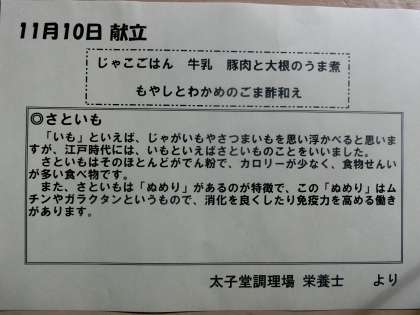 11月10日 献立
じゃこごはん　牛乳　豚肉と大根のうま煮
もやしとわかめのごま酢和え
◎さといも
「いも」といえば、じゃがいもやさつまいもを思い浮かべると思いま
すが、江戸時代には、いもといえばさといものことをいいました。
さといもはそのほとんどがでん粉で、カロリーが少なく、食物せんい
が多い食べ物です。
また、さといもは「ぬめり」があるのが特徴で、この「ぬめり」はム
チンやガラクタンというもので、消化を良くしたり免疫力を高める働き
があります。
太子堂調理場 栄養士　　より